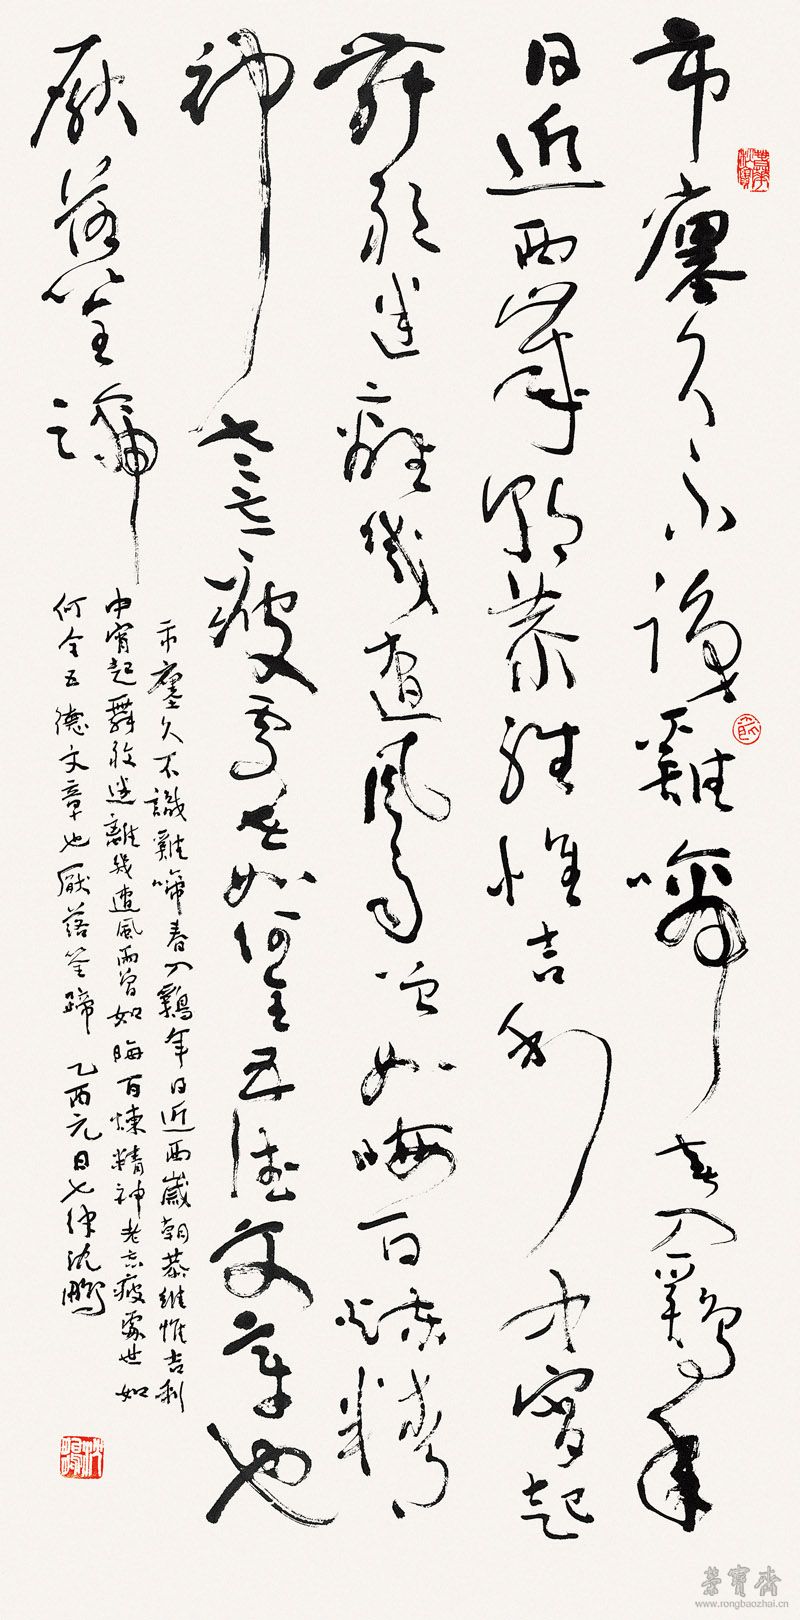 市廛久不識雞啼春入鷄年
日近西歲朝恭維惟吉利中宵起
舞欲迷離幾遭風雨曾如晦百煉精
神老忘疲處世如何全五德文章也
厭落筌蹄
市廛久不識雞啼春入鷄年日近西歲朝恭維惟吉利
中宵起舞欲迷離幾遭風雨曾如晦百煉精神老忘疲處世如
何全五德文章也厭落筌蹄 乙酉元日七律沈鵬
榮寶齋
www.rongbaozhai.cn